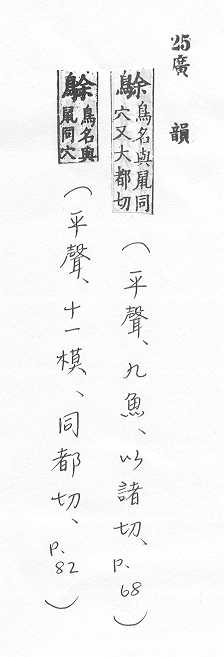 25廣韻
鵌鳥名與鼠同穴又大都切（平聲、九魚、以諸切、p.68）
鵌鳥名與鼠同穴（平聲、十一模、同都切、p.82）